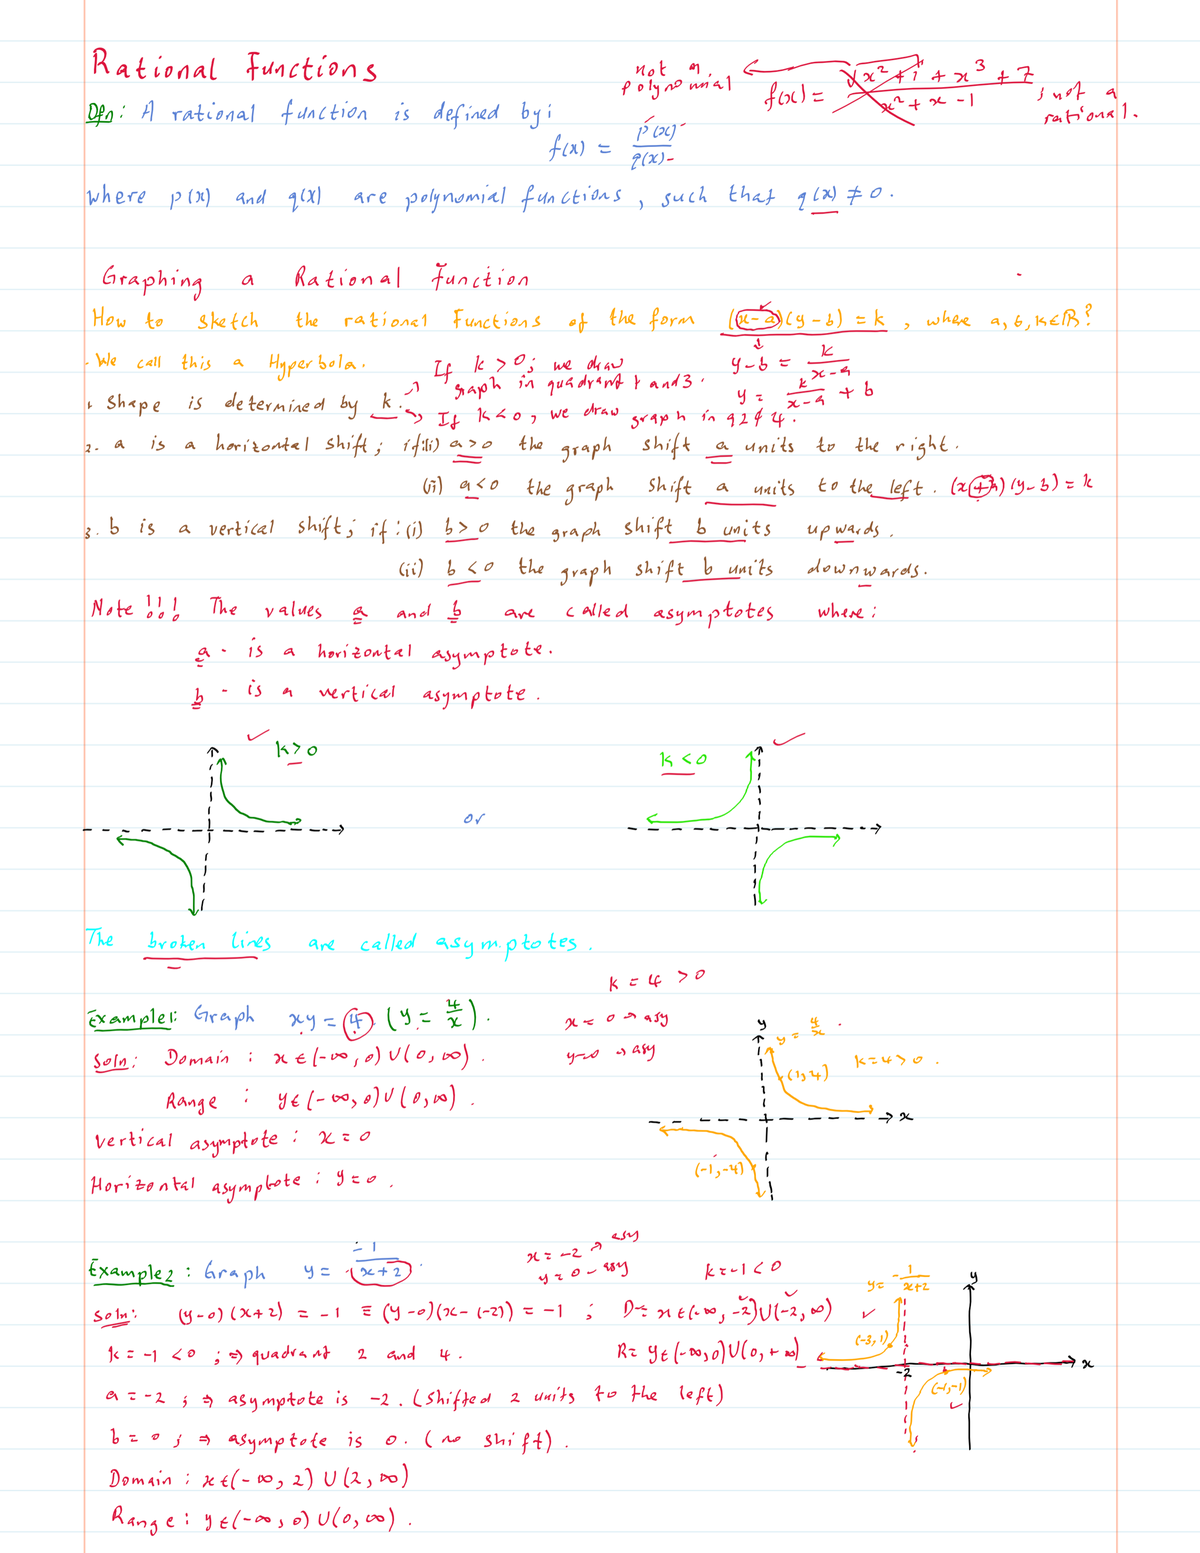 Rational Functions
not a polynomial
f(x) = √x² + 1 + x³ + 7 / x² + x - 1 ; not a rational.
Dfn: A rational function is defined by;
f(x) = p(x) / q(x)
where p(x) and q(x) are polynomial functions, such that q(x) ≠ 0.
Graphing a Rational Function
How to sketch the rational Functions of the form (x-a)(y-b) = k, where a, b, k ∈ ℝ?
y-b = k/(x-a)
y = k/(x-a) + b
- We call this a Hyperbola.
1. Shape is determined by k.
→ If k > 0; we draw graph in quadrant 1 and 3.
→ If k<0, we draw graph in q2 & 4.
2. a is a horizontal shift; if:(i) a>0 the graph shift a units to the right.
(ii) a<0 the graph shift a units to the left. (x+a)(y-b) = k
3. b is a vertical shift; if:(i) b>0 the graph shift b units upwards.
(ii) b<0 the graph shift b units downwards.
Note !!! The values a and b are called asymptotes where:
a - is a horizontal asymptote.
b - is a vertical asymptote.
k>0
or
k<0
The broken lines are called asymptotes.
k = 4 > 0
Example1: Graph xy = 4 (y = 4/x).
x = 0 → asy
y=0 → asy
Soln: Domain : x ∈ (-∞, 0) U (0, ∞).
Range : y ∈ (-∞, 0) U (0, ∞).
Vertical asymptote : x = 0
Horizontal asymptote : y = 0.
y
y = 4/x
k=4>0.
(1,4)
x
(-1,-4)
Example2: Graph y = -1/(x+2)
x = -2 → asy
y = 0 - asy
k=-1<0
Soln: (y-0)(x+2) = -1 ≡ (y-0)(x-(-2)) = -1 ; D= x ∈ (-∞, -2) U (-2, ∞)
k = -1 < 0 ; ⇒ quadrant 2 and 4.
R= y ∈ (-∞, 0) U (0, +∞)
a = -2 ; ⇒ asymptote is -2. (shifted 2 units to the left)
b = 0 ; ⇒ asymptote is 0. (no shift).
Domain : x ∈ (-∞, 2) U (2, ∞)
Range : y ∈ (-∞, 0) U (0, ∞).
y = -1/(x+2)
y
(-3,1)
x
-2
(-1,-1)